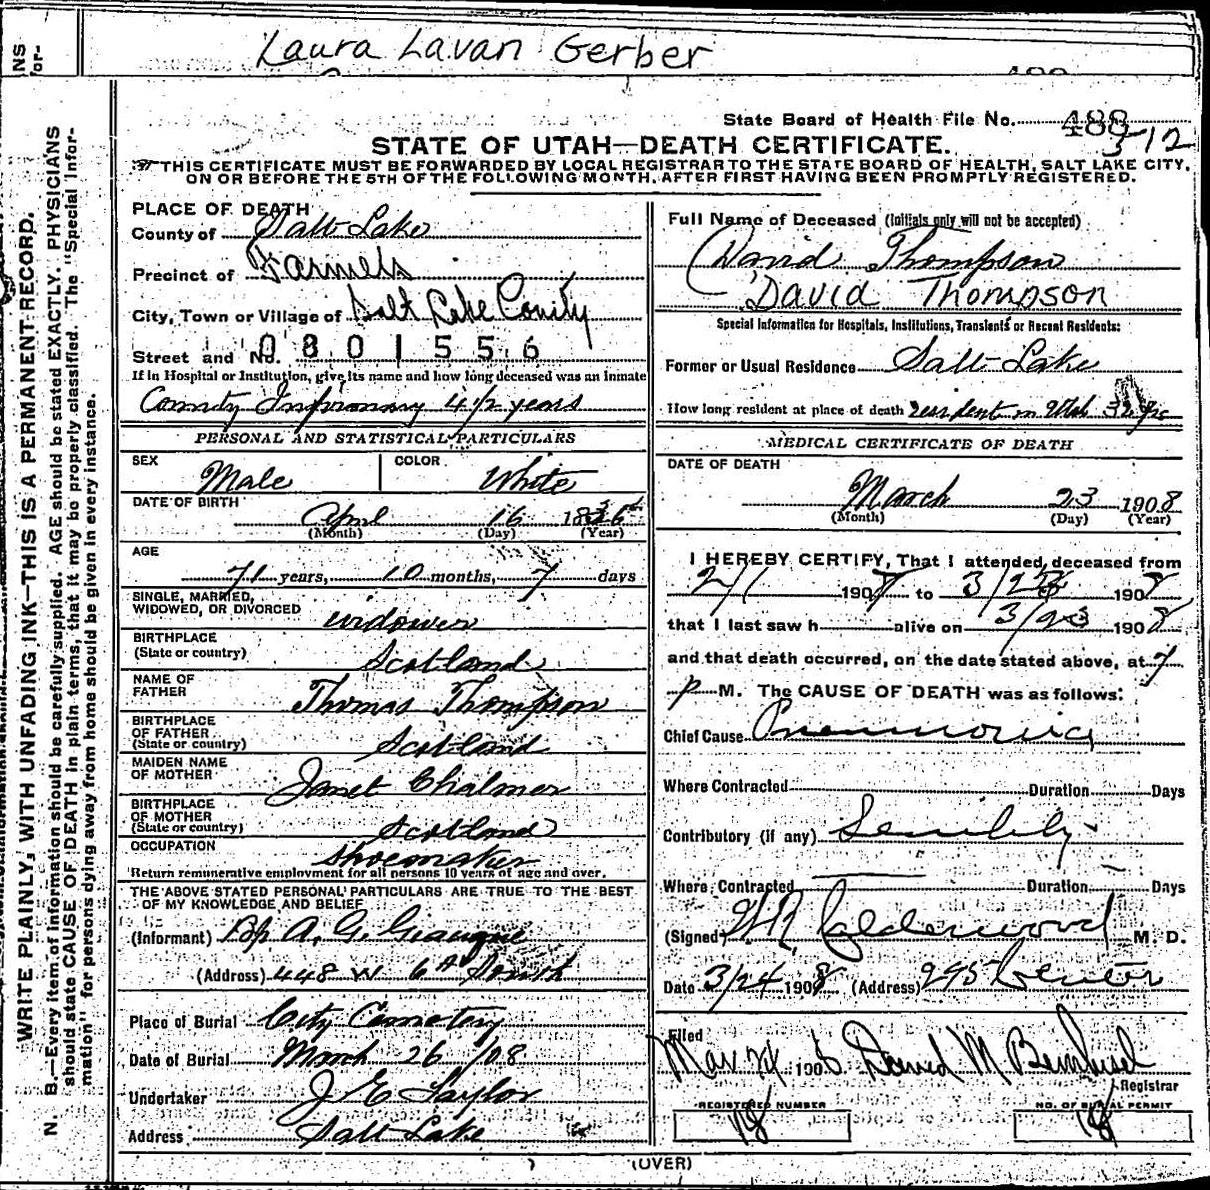 NS
or-
Laura Lavan Gerber
WRITE PLAINLY, WITH UNFADING INK—THIS IS A PERMANENT RECORD.
N. B.—Every item of information should be carefully supplied. AGE should be stated EXACTLY. PHYSICIANS
should state CAUSE OF DEATH in plain terms, that it may be properly classified. The "Special Infor-
mation" for persons dying away from home should be given in every instance.
State Board of Health File No. 488
312
STATE OF UTAH—DEATH CERTIFICATE.
THIS CERTIFICATE MUST BE FORWARDED BY LOCAL REGISTRAR TO THE STATE BOARD OF HEALTH, SALT LAKE CITY,
ON OR BEFORE THE 5TH OF THE FOLLOWING MONTH, AFTER FIRST HAVING BEEN PROMPTLY REGISTERED.
PLACE OF DEATH
County of Salt Lake
Precinct of Farmers
City, Town or Village of Salt Lake County
Street and No. 0801556
If in Hospital or Institution, give its name and how long deceased was an inmate
County Infirmary 4 1/2 years
PERSONAL AND STATISTICAL PARTICULARS
SEX Male COLOR White
DATE OF BIRTH
April 16
(Month) (Day) (Year)
AGE
71 years, 10 months, 7 days
SINGLE, MARRIED,
WIDOWED, OR DIVORCED widower
BIRTHPLACE
(State or country) Scotland
NAME OF
FATHER Thomas Thompson
BIRTHPLACE
OF FATHER
(State or country) Scotland
MAIDEN NAME
OF MOTHER Janet Chalmer
BIRTHPLACE
OF MOTHER
(State or country) Scotland
OCCUPATION Shoemaker
Return remunerative employment for all persons 10 years of age and over.
THE ABOVE STATED PERSONAL PARTICULARS ARE TRUE TO THE BEST
OF MY KNOWLEDGE AND BELIEF
(Informant) Bp A. G. Giauque
(Address) 448 W 6th South
Place of Burial City Cemetery
Date of Burial March 26 /08
Undertaker J E Taylor
Address Salt Lake
Full Name of Deceased (Initials only will not be accepted)
David Thompson
David Thompson
Special Information for Hospitals, Institutions, Transients or Recent Residents:
Former or Usual Residence Salt Lake
How long resident at place of death resident in Utah 32 yrs
MEDICAL CERTIFICATE OF DEATH
DATE OF DEATH
March 23 1908
(Month) (Day) (Year)
I HEREBY CERTIFY, That I attended deceased from
2/1 1908 to 3/23 1908
that I last saw h alive on 3/23 1908
and that death occurred, on the date stated above, at 7
P M. The CAUSE OF DEATH was as follows:
Chief Cause Pneumonia
Where Contracted Duration Days
Contributory (if any) Senility
Where Contracted Duration Days
(Signed) W R Calderwood M. D.
Date 3/24 1908 (Address) 295 Center
Filed
Mar 24 1908 David M Registrar
REGISTERED NUMBER NO. OF BURIAL PERMIT
18 18
(OVER)